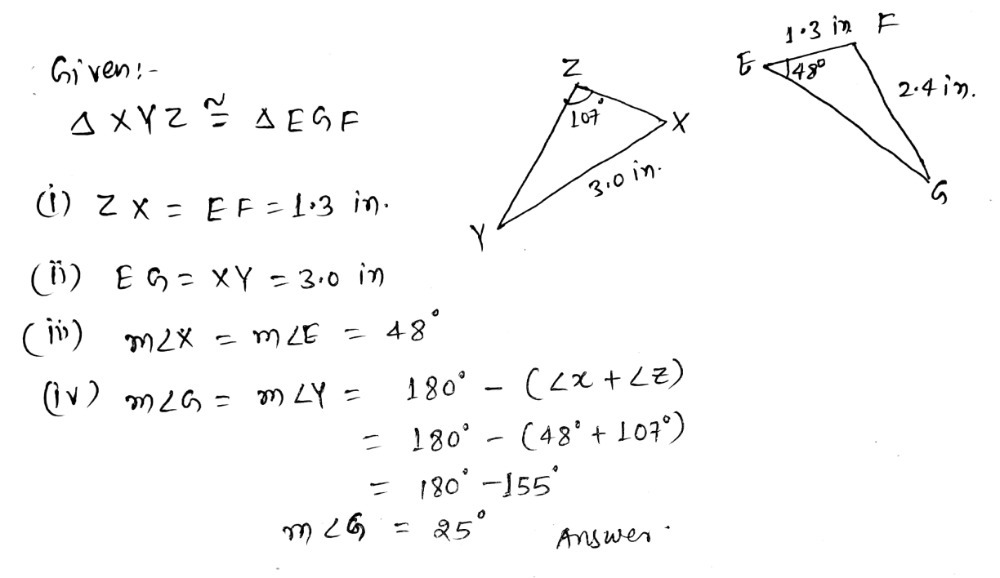 Given:-
Δ XYZ ≅ Δ EGF
(i) ZX = EF = 1.3 in.
(ii) EG = XY = 3.0 in
(iii) m∠X = m∠E = 48°
(iv) m∠G = m∠Y = 180° - (∠x + ∠z)
= 180° - (48° + 107°)
= 180° - 155°
m∠G = 25° Answer.
Z
107°
X
3.0 in.
Y
1.3 in F
E
48°
2.4 in.
G